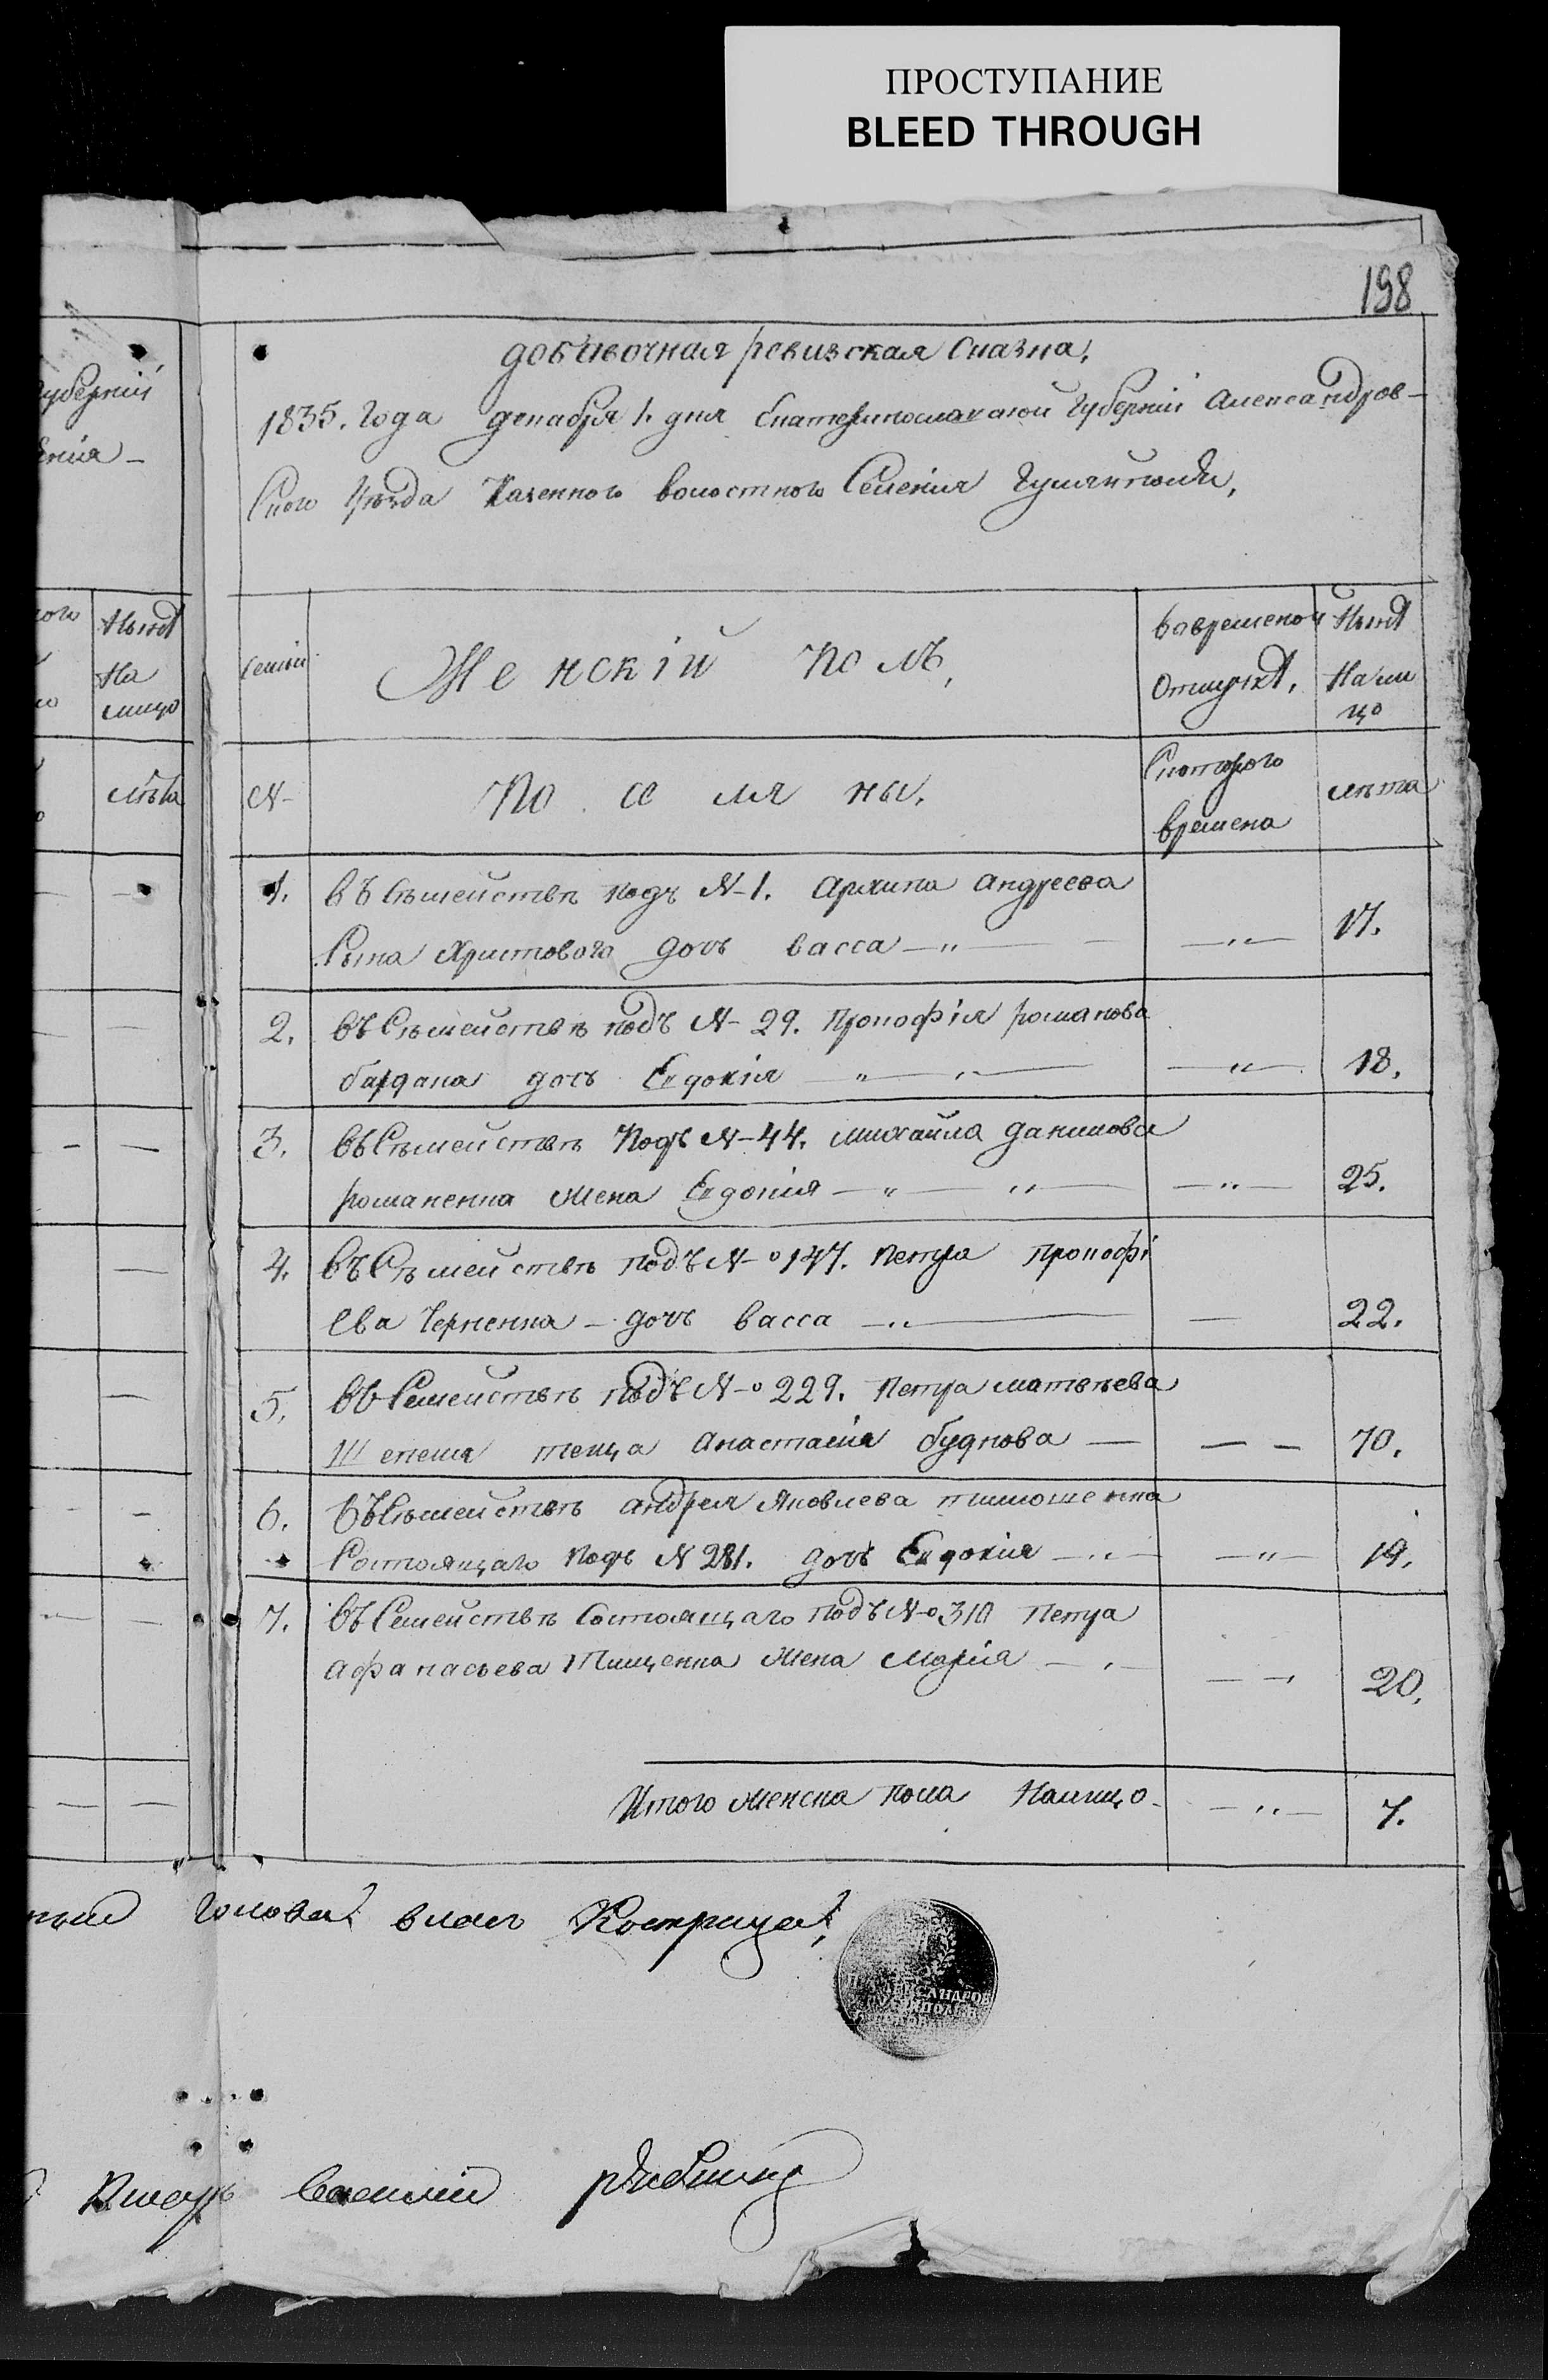 ПРОСТУПАНИЕ
BLEED THROUGH
198
добавочная ревизская Сказка,
1835. Года декабря 1. дня Екатеринославской Губерніи Александров-
Скаго Уѣзда Казенного волостного Селенія Гуляйполя,
Губерніи
енія-
Нынѣ
На
лицо
лѣта
Семьи
Женскій Полъ,
вовременой
Отлучкѣ,
Нынѣ
Нали
цо
N-
Поселяны.
Скоторого
времена
лѣта
1. въ Съмействѣ подъ N-1. Архипа Андреева
Сына Христового дочь васса —"— —"— 17.
2. въ Съмействѣ подъ N-29. Прокофія романова
бардака дочь Евдокія —"— —"— 18.
3. въ Съмействѣ Подъ N-44. михайла данилова
романенка жена Евдокия —"— —"— —"— 25.
4. въ Съмействѣ подъ N-o 147. Петра Прокофі
ева Черненка - дочь васса —"— — 22.
5. въ Семействѣ подъ N-o 229. Петра матвѣева
теща Анастасия буднова — — — 70.
6. въ Съмействѣ андрея Яковлева тимошенка
Состоящаго подъ N 281. дочь Евдокия —"— —"— 19.
7. въ Семействѣ Состоящаго подъ N-o 310 Петра
афанасьева Тищенка жена Марія — — 20.
Итого женска пола Налицо- —"— 7.
Голова влас Кострица
Писарь Василий